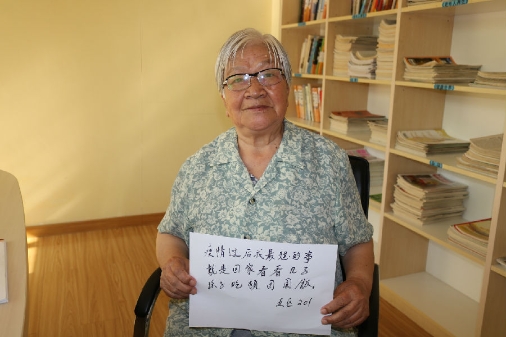 疫情过后我最想的事
就是回家看看几子
孙子吃顿团圆饭。
201